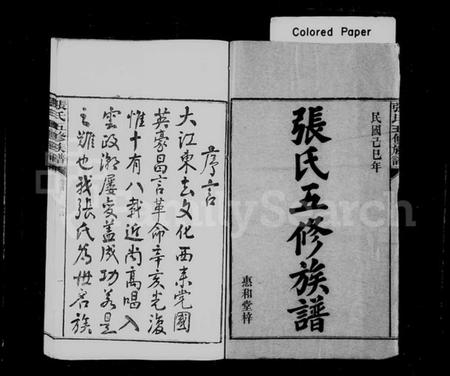 Colored Paper
民國己巳年
張氏五修族譜
惠和堂梓
張氏五修族譜
序言
大江東去文化西來党國
英豪昌言革命辛亥光復
惟十有八載近尚高唱入
雲政潮屢變蓋成功若是
之難也我張氏為世君族
張氏五修族譜
FamilySearch